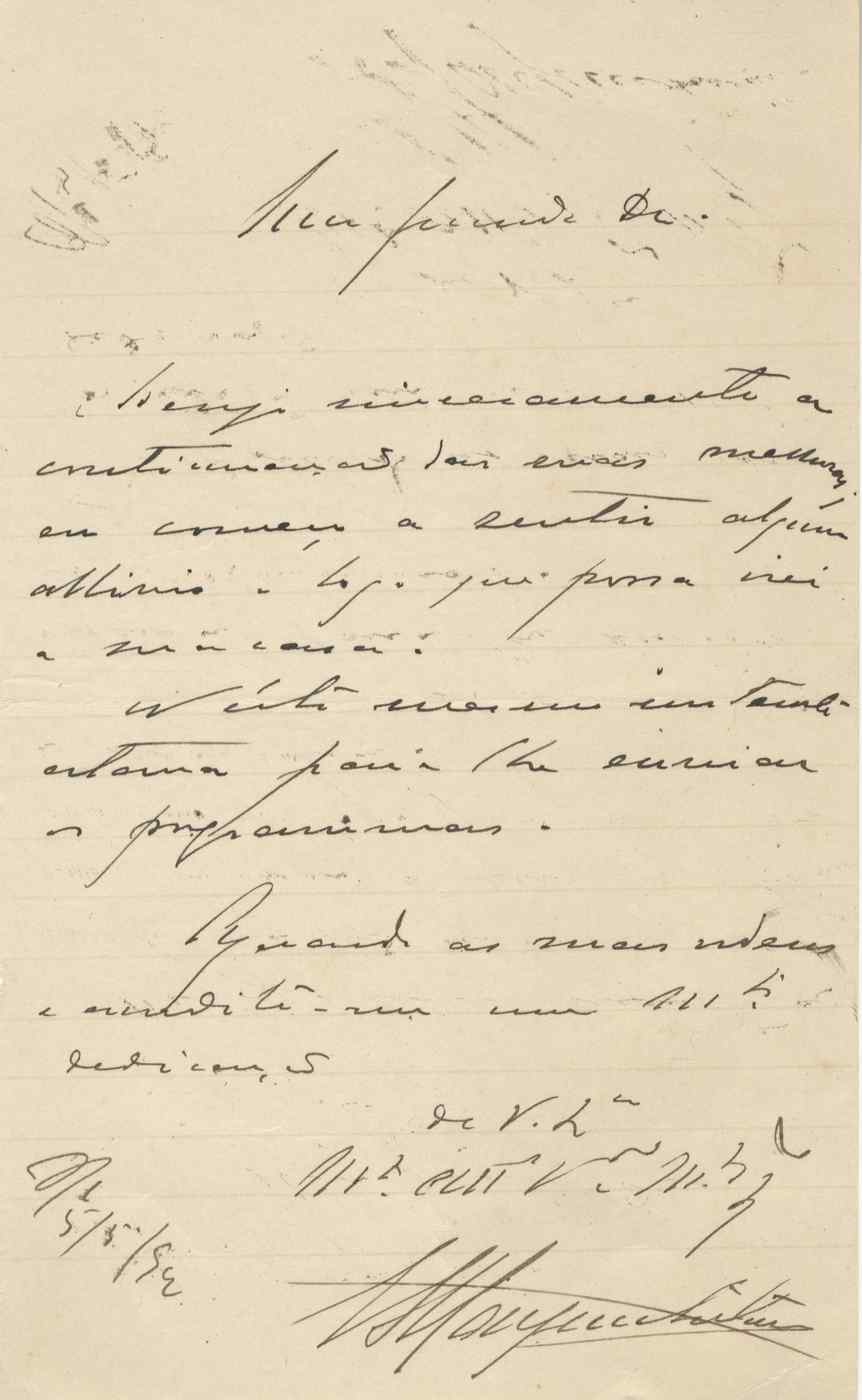 Meu grande Dr.
Desejo sinceramente a
continuação das suas melhoras,
eu começo a sentir algum
allivio e logo que possa irei
a sua casa.
N'este mesmo instante
estava para lhe enviar
os programmas.
Aguardo as suas ordens
e acredite-me com m.ta
dedicação
de V. Ex.a
M.to Att.o V.or M.to
5/5/92